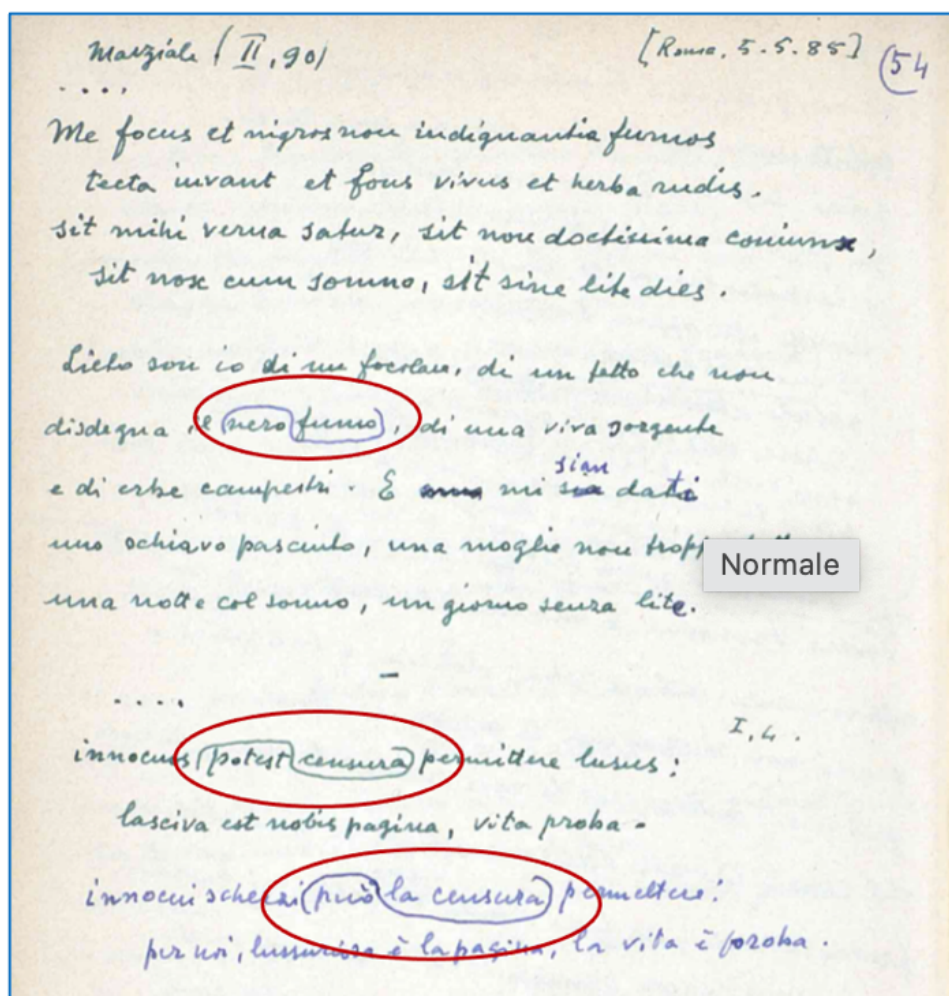 Marziale (II, 90)
[Roma, 5.5.85]
54
....
Me focus et nigros non indignantia fumos
tecta iuvant et fons vivus et herba rudis.
sit mihi verna satur, sit non doctissima coniunx,
sit nox cum somno, sit sine lite dies.
Lieto son io di un focolare, di un tetto che non
disdegna il nero fumo, di una viva sorgente
sian
e di erbe campestri. E mi sia dati
uno schiavo pasciuto, una moglie non
Normale
una notte col sonno, un giorno senza lite.
–
....
I, 4.
innocuos potest censura permittere lusus:
lasciva est nobis pagina, vita proba -
innocui scherzi può la censura permettere:
per noi, lussuriosa è la pagina, la vita è proba.